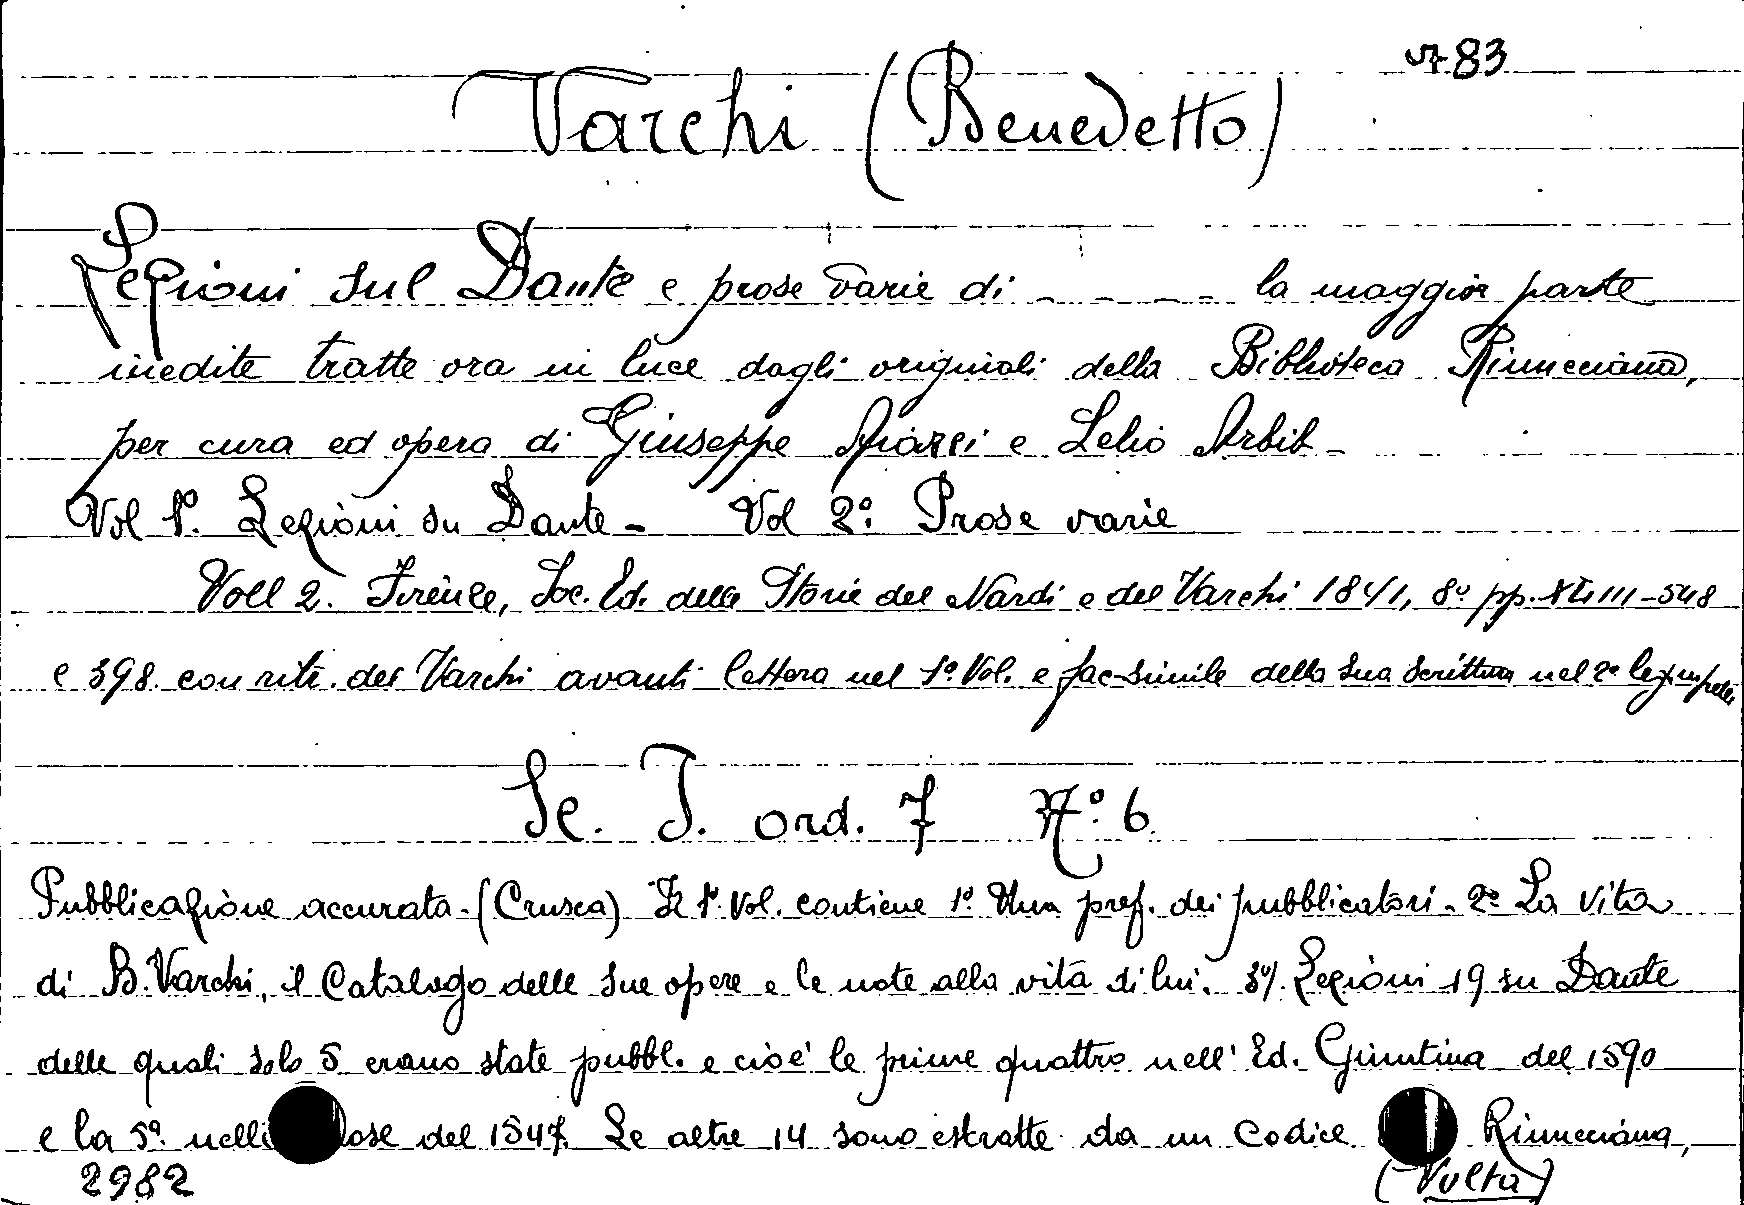 83
Varchi (Benedetto)
Lezioni sul Dante e prose varie di - - - - la maggior parte
inedite tratte ora in luce dagli originali della Biblioteca Rinucciana,
per cura ed opera di Giuseppe Aiazzi e Lelio Arbib -
Vol 1º. Lezioni su Dante - Vol 2º. Prose varie
Voll 2. Firenze, Soc. Ed. delle Storie del Nardi e del Varchi 1841, 8º pp. XLIII-548
e 398. con ritr. del Varchi avanti lettera nel 1º Vol. e fac-simile della sua scrittura nel 2º
Se. I. ord. 7 Nº. 6
Pubblicazione accurata - (Crusca) Il 1º. Vol. contiene 1º. Una pref. dei pubblicatori - 2º La vita
di B. Varchi, il Catalogo delle sue opere e le note alla vita di lui. 3º/. Lezioni 19 su Dante
delle quali solo 5 erano state pubbl. e cioè le prime quattro nell' Ed. Giuntina del 1590
e la 5ª. del 1547. Le altre 14 sono estratte da un Codice Rinucciana,
2982 (Volta)